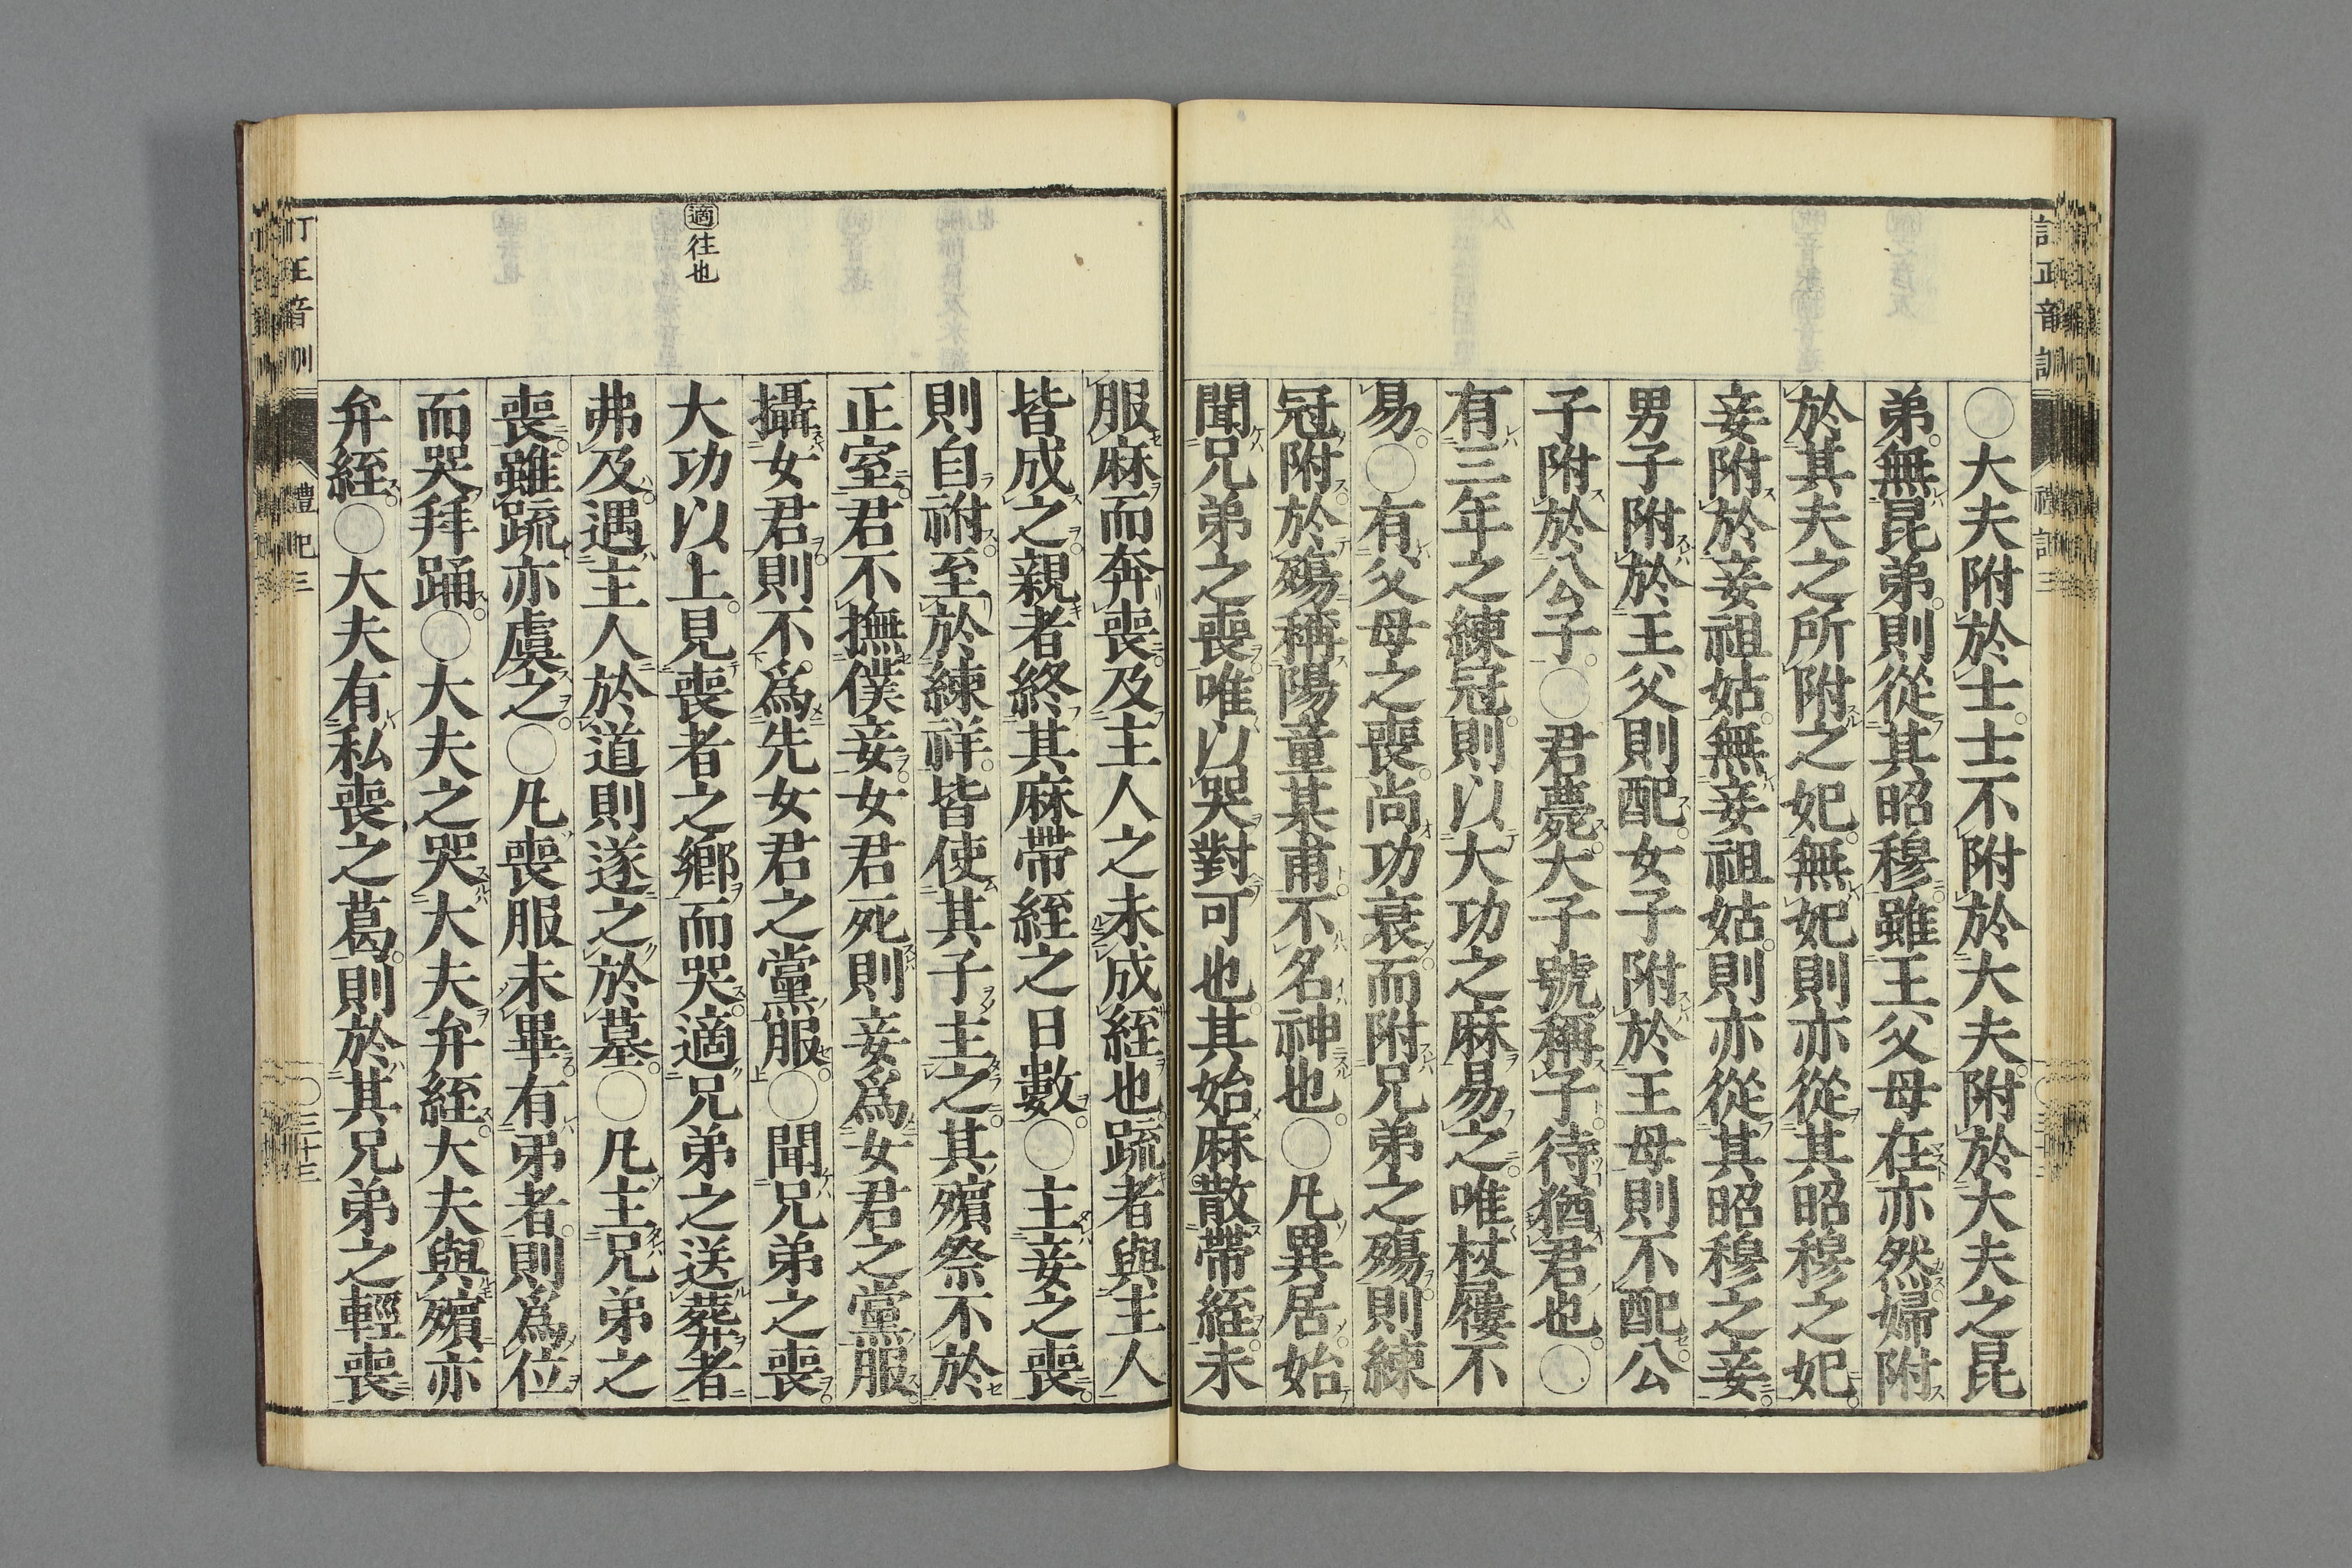 ○大夫附於士士不附於大夫附於大夫之昆
弟無昆弟則從其昭穆雖王父母在亦然婦附
於其夫之所附之妃無妃則亦從其昭穆之妃
妾附於妾祖姑無妾祖姑則亦從其昭穆之妾
男子附於王父則配女子附於王母則不配公
子附於公子○君薨大子號稱子待猶君也○
有三年之練冠則以大功之麻易之唯杖屨不
易○有父母之喪尚功衰而附兄弟之殤則練
冠附於殤稱陽童某甫不名神也○凡異居始
聞兄弟之喪唯以哭對可也其始麻散帶絰未
服麻而奔喪及主人之未成絰也疏者與主人
皆成之親者終其麻帶絰之日數○主妾之喪
則自祔至於練祥皆使其子主之其殯祭不於
正室君不撫僕妾女君死則妾爲女君之黨服
攝女君則不爲先女君之黨服○聞兄弟之喪
大功以上見喪者之鄉而哭適兄弟之送葬者
弗及遇主人於道則遂之於墓○凡主兄弟之
喪雖疏亦虞之○凡喪服未畢有弔者則爲位
而哭拜踊○大夫之哭大夫弁絰大夫與殯亦
弁絰○大夫有私喪之葛則於其兄弟之輕喪
適往也
訂正音訓
禮記三
○三十三